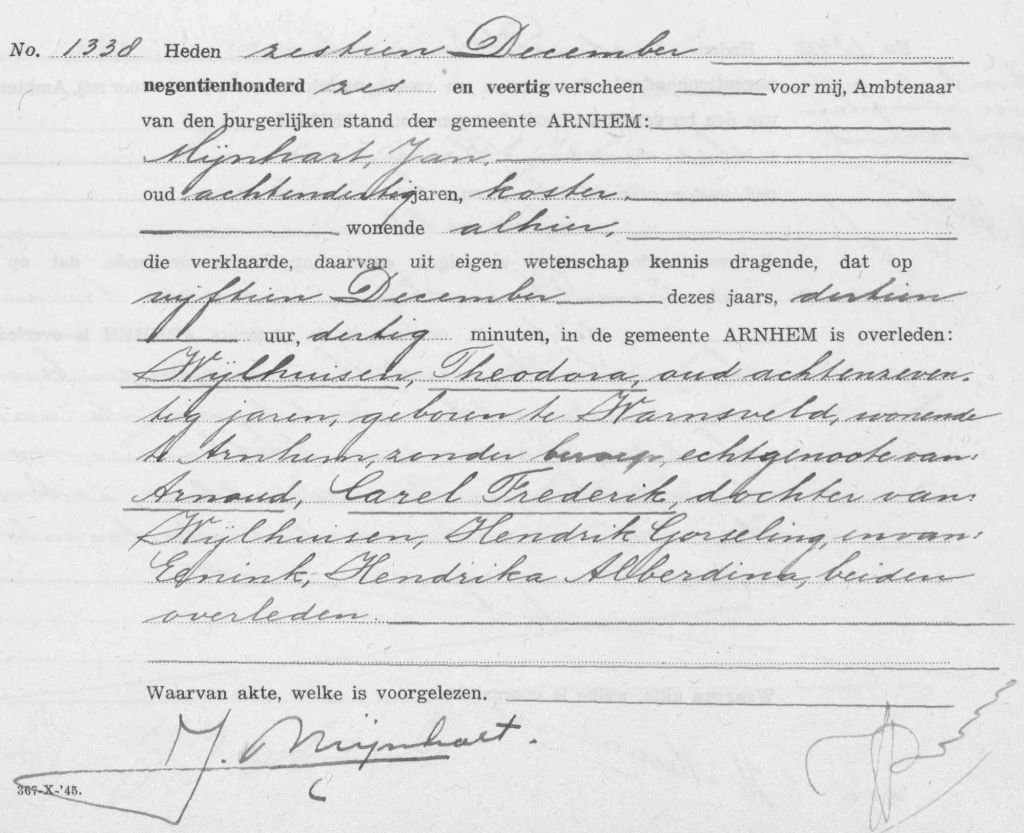 No. 1338 Heden zestien December
negentienhonderd zes en veertig verscheen voor mij, Ambtenaar
van den burgerlijken stand der gemeente ARNHEM:
Mijnhart, Jan,
oud achtendertig jaren, koster,
wonende alhier,
die verklaarde, daarvan uit eigen wetenschap kennis dragende, dat op
vijftien December dezes jaars, dertien
uur, dertig minuten, in de gemeente ARNHEM is overleden:
Wijlhuisen, Theodora, oud achtenzeven-
tig jaren, geboren te Warnsveld, wonende
te Arnhem, zonder beroep, echtgenoote van:
Arnoud, Carel Frederik, dochter van:
Wijlhuisen, Hendrik Gorseling, en van:
Hendrika Alberdina, beiden
overleden.
Waarvan akte, welke is voorgelezen.
J. Mijnhart.
367-X-'45.